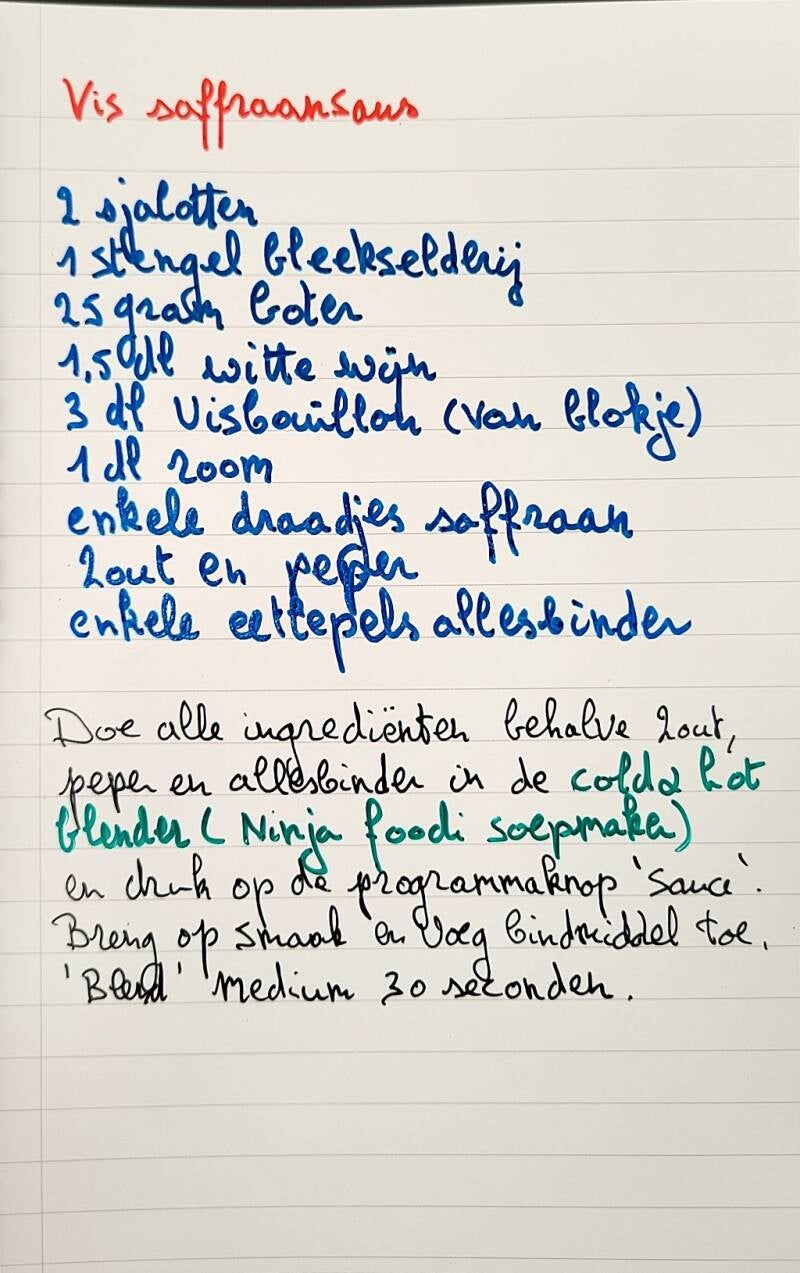 Vis saffraansaus
2 sjalotten
1 stengel bleekselderij
25 gram boter
1,5 dl witte wijn
3 dl visbouillon (van blokje)
1 dl room
enkele draadjes saffraan
Zout en peper
enkele eetlepels allesbinder
Doe alle ingrediënten behalve zout,
peper en allesbinder in de cold & hot
blender (Ninja foodi soepmaker)
en druk op de programmaknop 'Sauce'.
Breng op smaak en voeg bindmiddel toe.
'Blend' medium 30 seconden.